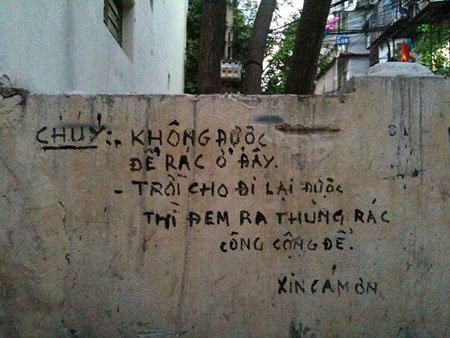 CHÚ Ý: - KHÔNG ĐƯỢC
ĐỂ RÁC Ở ĐÂY.
- TRỜI CHO ĐI LẠI ĐƯỢC
THÌ ĐEM RA THÙNG RÁC
CÔNG CỘNG ĐỂ.
XIN CẢM ƠN